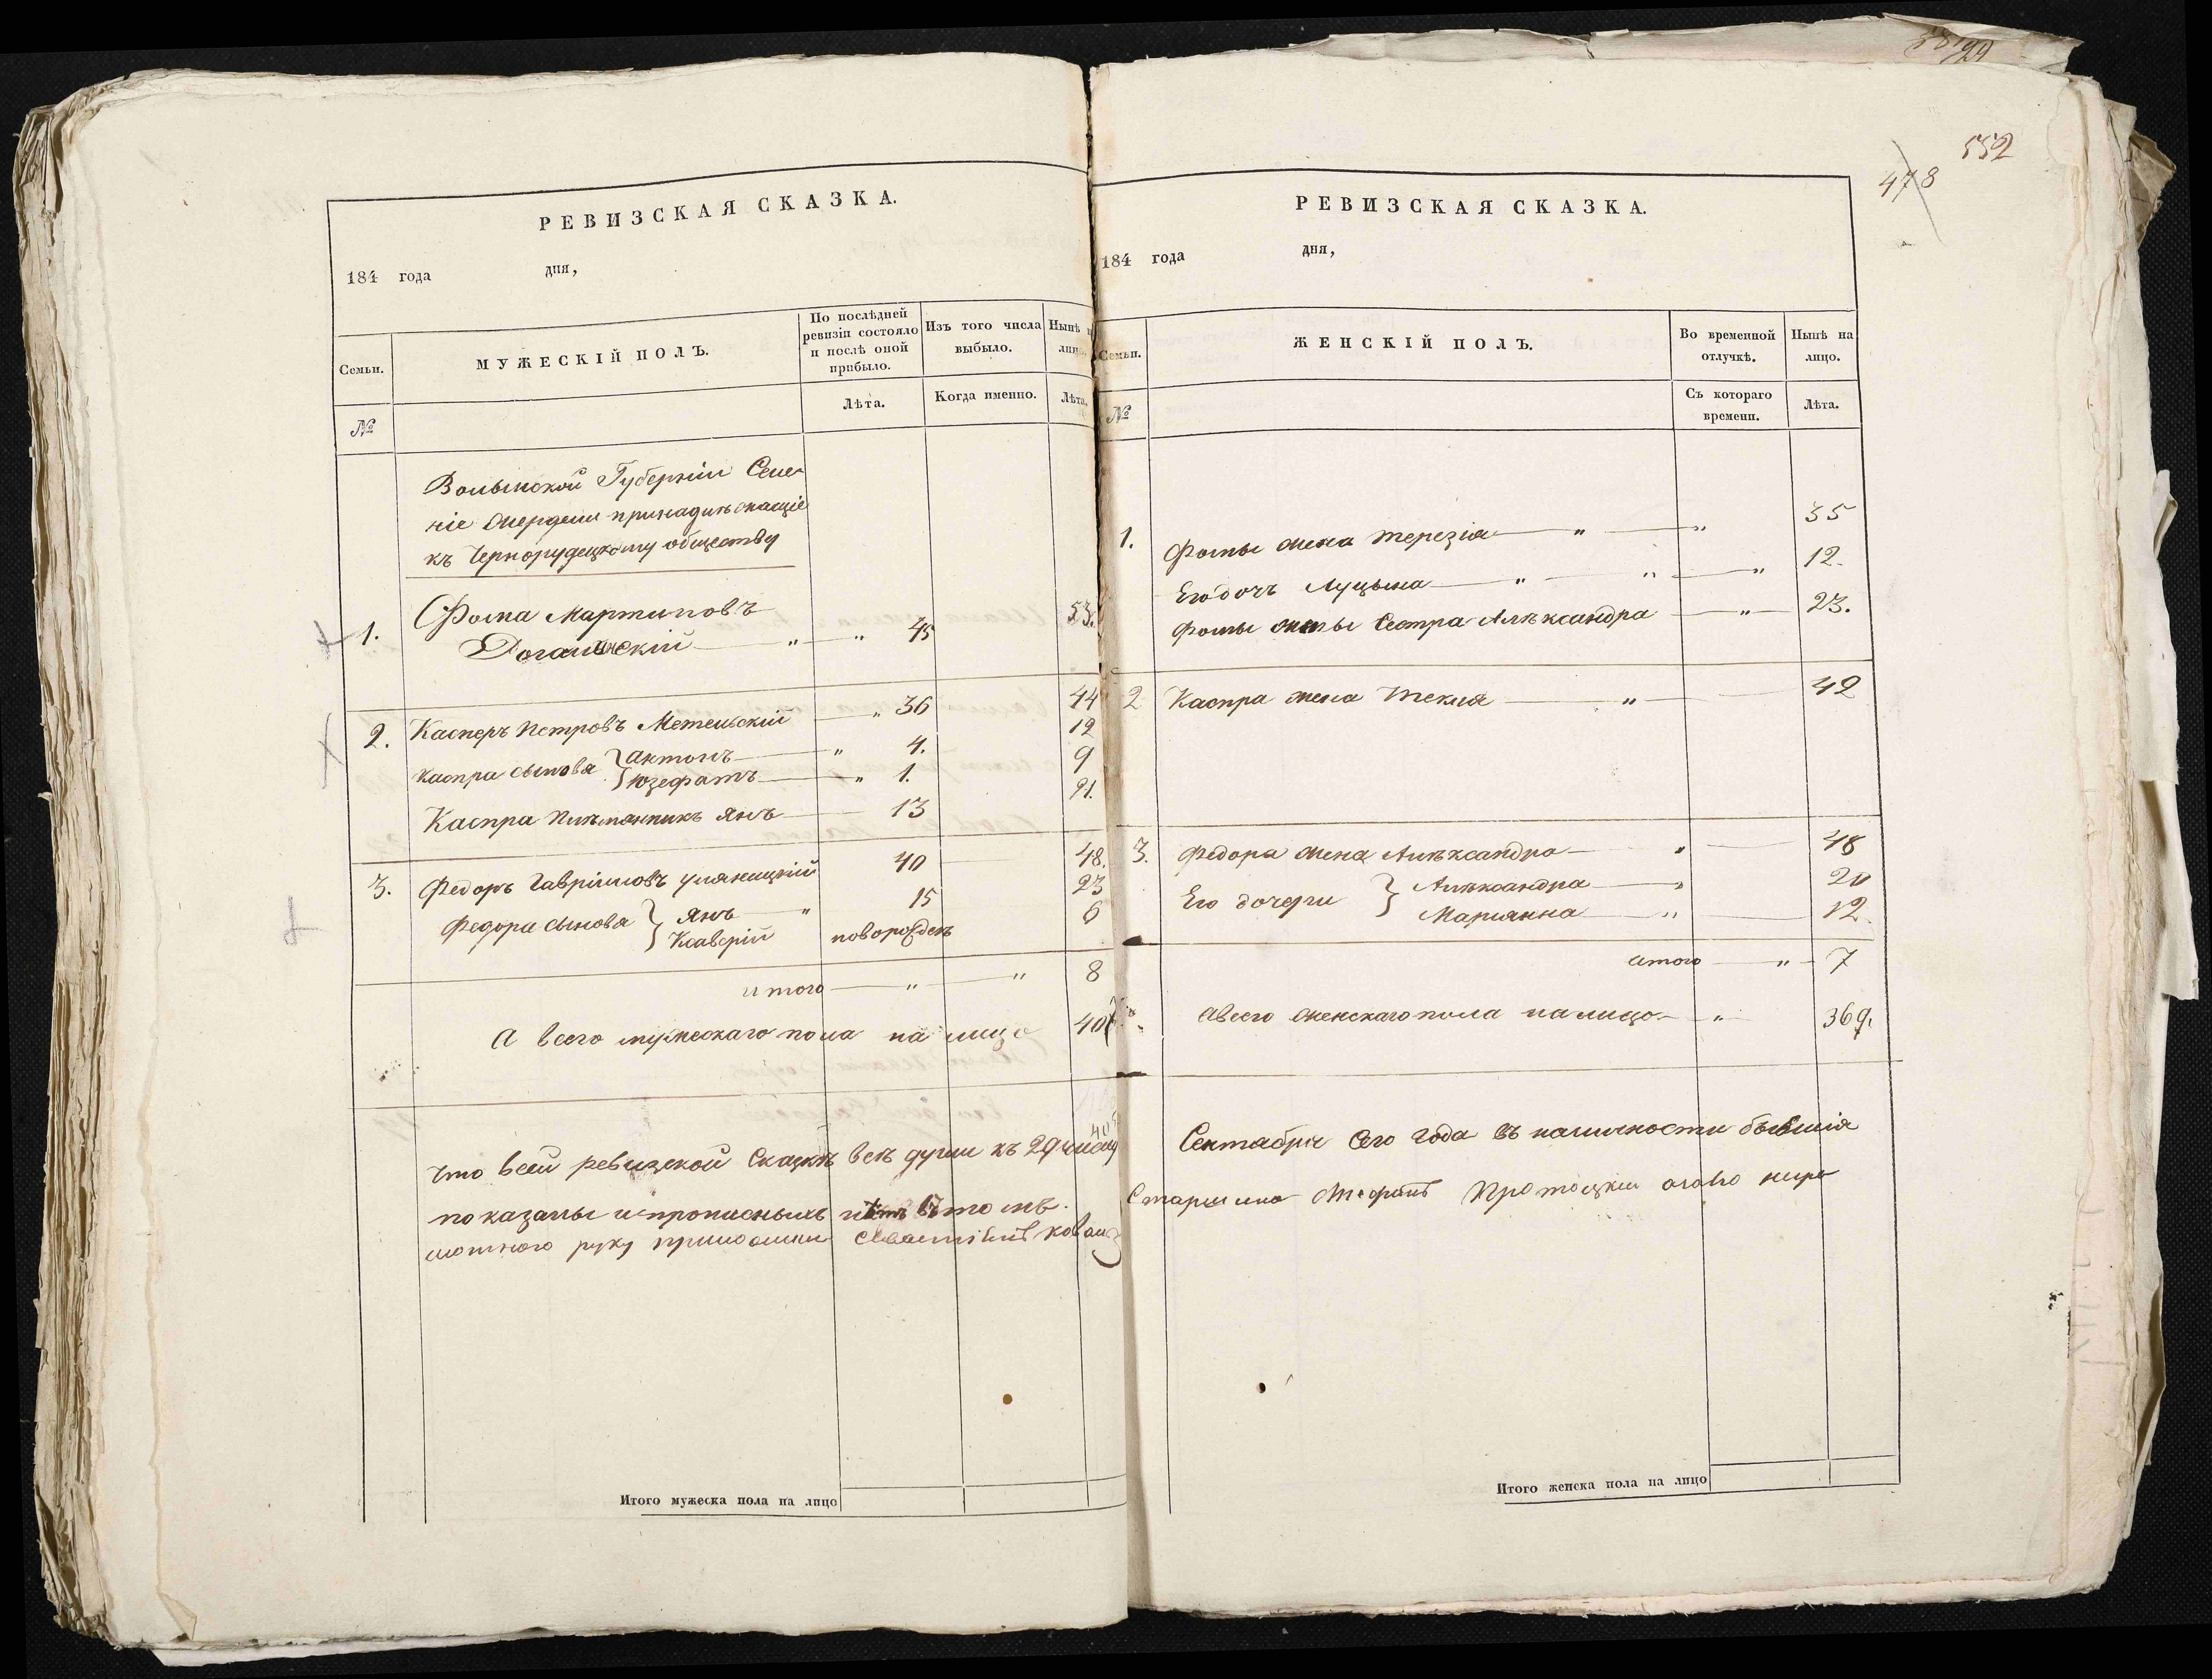 РЕВИЗСКАЯ СКАЗКА.
184 года дня,
Семьи.
МУЖЕСКІЙ ПОЛЪ.
По послѣдней ревизіи состояло и послѣ оной прибыло.
Изъ того числа выбыло.
Нынѣ на лицо.
№
Лѣта.
Когда именно.
Лѣта.
Волынской Губерніи Селе-
ніе принадлежащіе
къ Чернорудецкому обществу
1. Фома Мартиновъ
" " 45 53.
2. Касперъ Петровъ Метельскій " 36 44
Каспра сынова } Антонъ " 4. 12
Юзефатъ " 1. 9
Каспра племянникъ Янъ 13 21.
3. Федоръ Гавріиловъ Уляницкій 40 48.
Федора сынова } Янъ " 15 23
Ксаверій новорожденъ 6
итого " " 8
А всего мужескаго пола на лицо
Что всей ревизской Сказкѣ всѣ души къ 29 числу
показаны и прописныхъ нѣтъ въ томъ
руку приложилъ
Итого мужеска пола на лицо
552
478
РЕВИЗСКАЯ СКАЗКА.
184 года дня,
Семьи.
ЖЕНСКІЙ ПОЛЪ.
Во временной отлучкѣ.
Нынѣ на лицо.
№
Съ котораго времени.
Лѣта.
1. Фомы жена Терезіа " " 35
Его дочь Луцына " " " 12.
Фомы жены Сестра Алѣксандра " 23.
2 Каспра жена Текля " 42
3. Федора жена Алѣксандра " 48
Его дочери } Алѣксандра " 20
Маріянна " 12.
итого " 7
А всего женскаго пола на лицо " 369.
Сентября Сего года въ наличности бывшія
Старшина
Итого женска пола на лицо